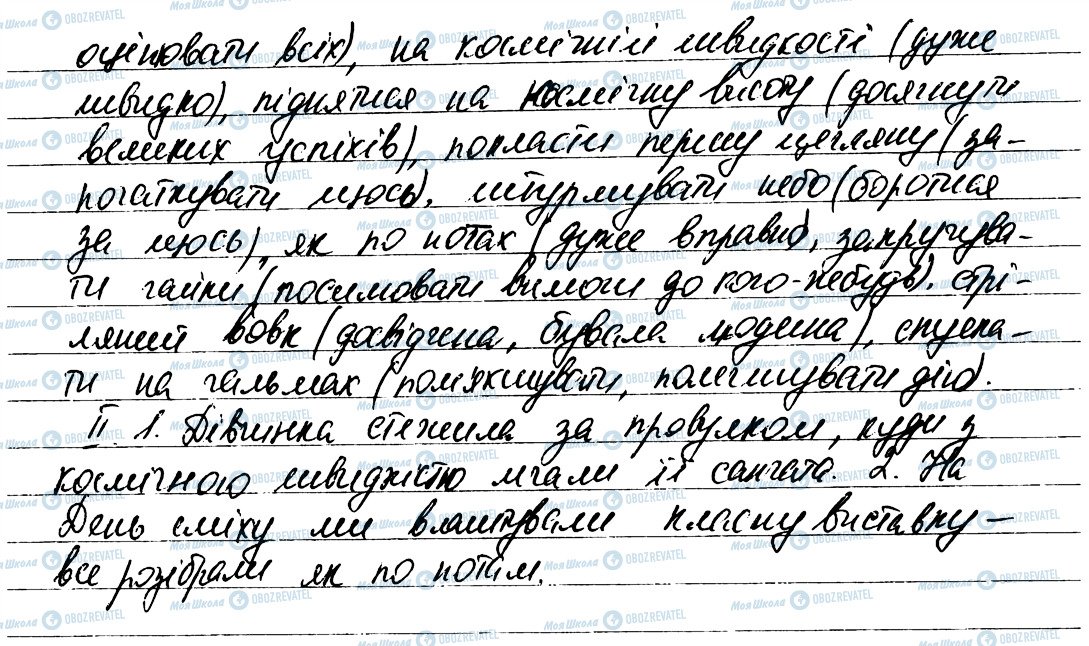 оцінювати всіх), на космічній швидкості (дуже
швидко), піднятися на космічну висоту (досягнути
великих успіхів), покласти першу цеглину (за-
початкувати щось), штурмувати небо (боротися
за щось), як по нотах (дуже вправно), закручува-
ти гайки (посилювати вимоги до кого-небудь), стрі-
ляний вовк (досвідчена, бувала людина), спуска-
ти на гальмах (пом'якшувати, полегшувати дію).
II 1. Дівчинка стежила за провулком, куди з
космічною швидкістю мчали її санчата. 2. На
День сміху ми влаштували класну виставку —
все розібрали як по нотам.